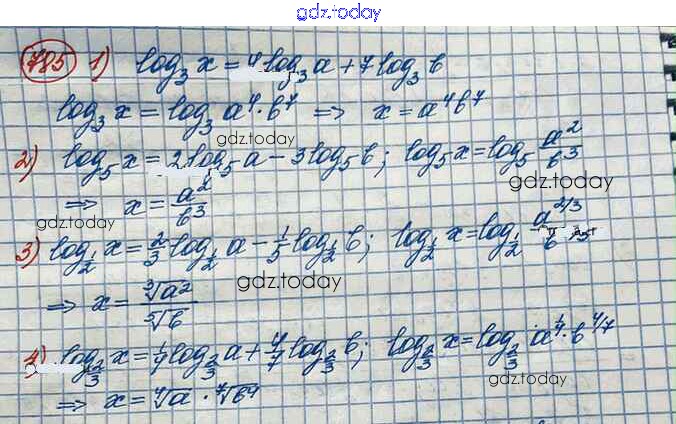 gdz.today
785 1) log₃ x = 4 log₃ a + 7 log₃ b
log₃ x = log₃ a⁴ · b⁷ ⇒ x = a⁴b⁷
gdz.today
2) log₅ x = 2 log₅ a − 3 log₅ b; log₅ x = log₅ a²/b³
gdz.today
⇒ x = a²/b³
gdz.today
3) log_½ x = 2/3 log_½ a − 1/5 log_½ b; log_½ x = log_½ a^2/3 / b
gdz.today
⇒ x = ∛a² / ⁵√b
4) log_⅔ x = 1/4 log_⅔ a + 4/7 log_⅔ b; log_⅔ x = log_⅔ a^¼ · b^4/7
gdz.today
⇒ x = ⁴√a · ⁷√b⁴